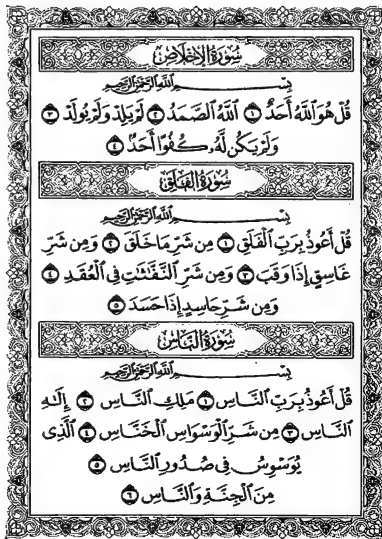 سُورَةُ الإِخْلَاصِ
بِسْمِ اللَّهِ الرَّحْمَٰنِ الرَّحِيمِ
قُلْ هُوَ اللَّهُ أَحَدٌ ١ اللَّهُ الصَّمَدُ ٢ لَمْ يَلِدْ وَلَمْ يُولَدْ ٣
وَلَمْ يَكُن لَّهُۥ كُفُوًا أَحَدٌ ٤
سُورَةُ الفَلَقِ
بِسْمِ اللَّهِ الرَّحْمَٰنِ الرَّحِيمِ
قُلْ أَعُوذُ بِرَبِّ الْفَلَقِ ١ مِن شَرِّ مَا خَلَقَ ٢ وَمِن شَرِّ
غَاسِقٍ إِذَا وَقَبَ ٣ وَمِن شَرِّ النَّفَّٰثَٰتِ فِي الْعُقَدِ ٤
وَمِن شَرِّ حَاسِدٍ إِذَا حَسَدَ ٥
سُورَةُ النَّاسِ
بِسْمِ اللَّهِ الرَّحْمَٰنِ الرَّحِيمِ
قُلْ أَعُوذُ بِرَبِّ النَّاسِ ١ مَلِكِ النَّاسِ ٢ إِلَٰهِ
النَّاسِ ٣ مِن شَرِّ الْوَسْوَاسِ الْخَنَّاسِ ٤ الَّذِى
يُوَسْوِسُ فِى صُدُورِ النَّاسِ ٥
مِنَ الْجِنَّةِ وَالنَّاسِ ٦